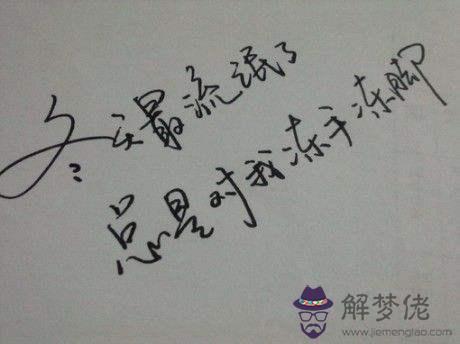 冬天最流氓了
总是对我冻手冻脚
解梦佬
www.jiemenglao.com